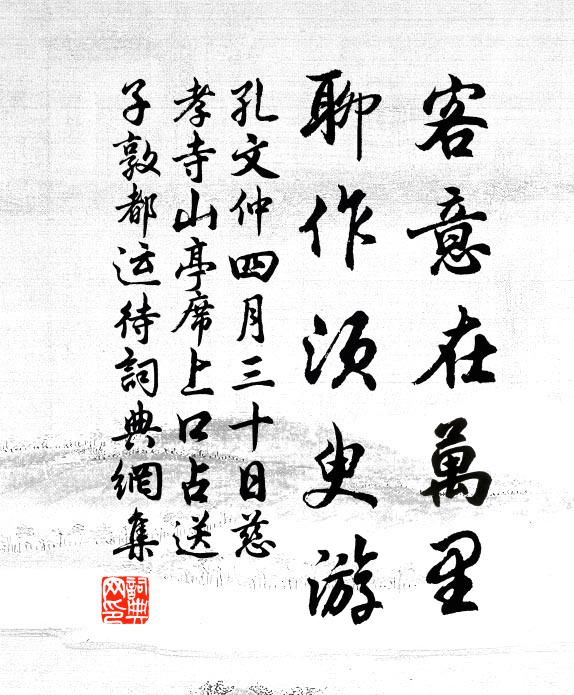 客意在萬里
聊作須臾游
孔文仲四月三十日慈
孝寺山亭席上口占送
子敦都运待詞典網集
詞典網印